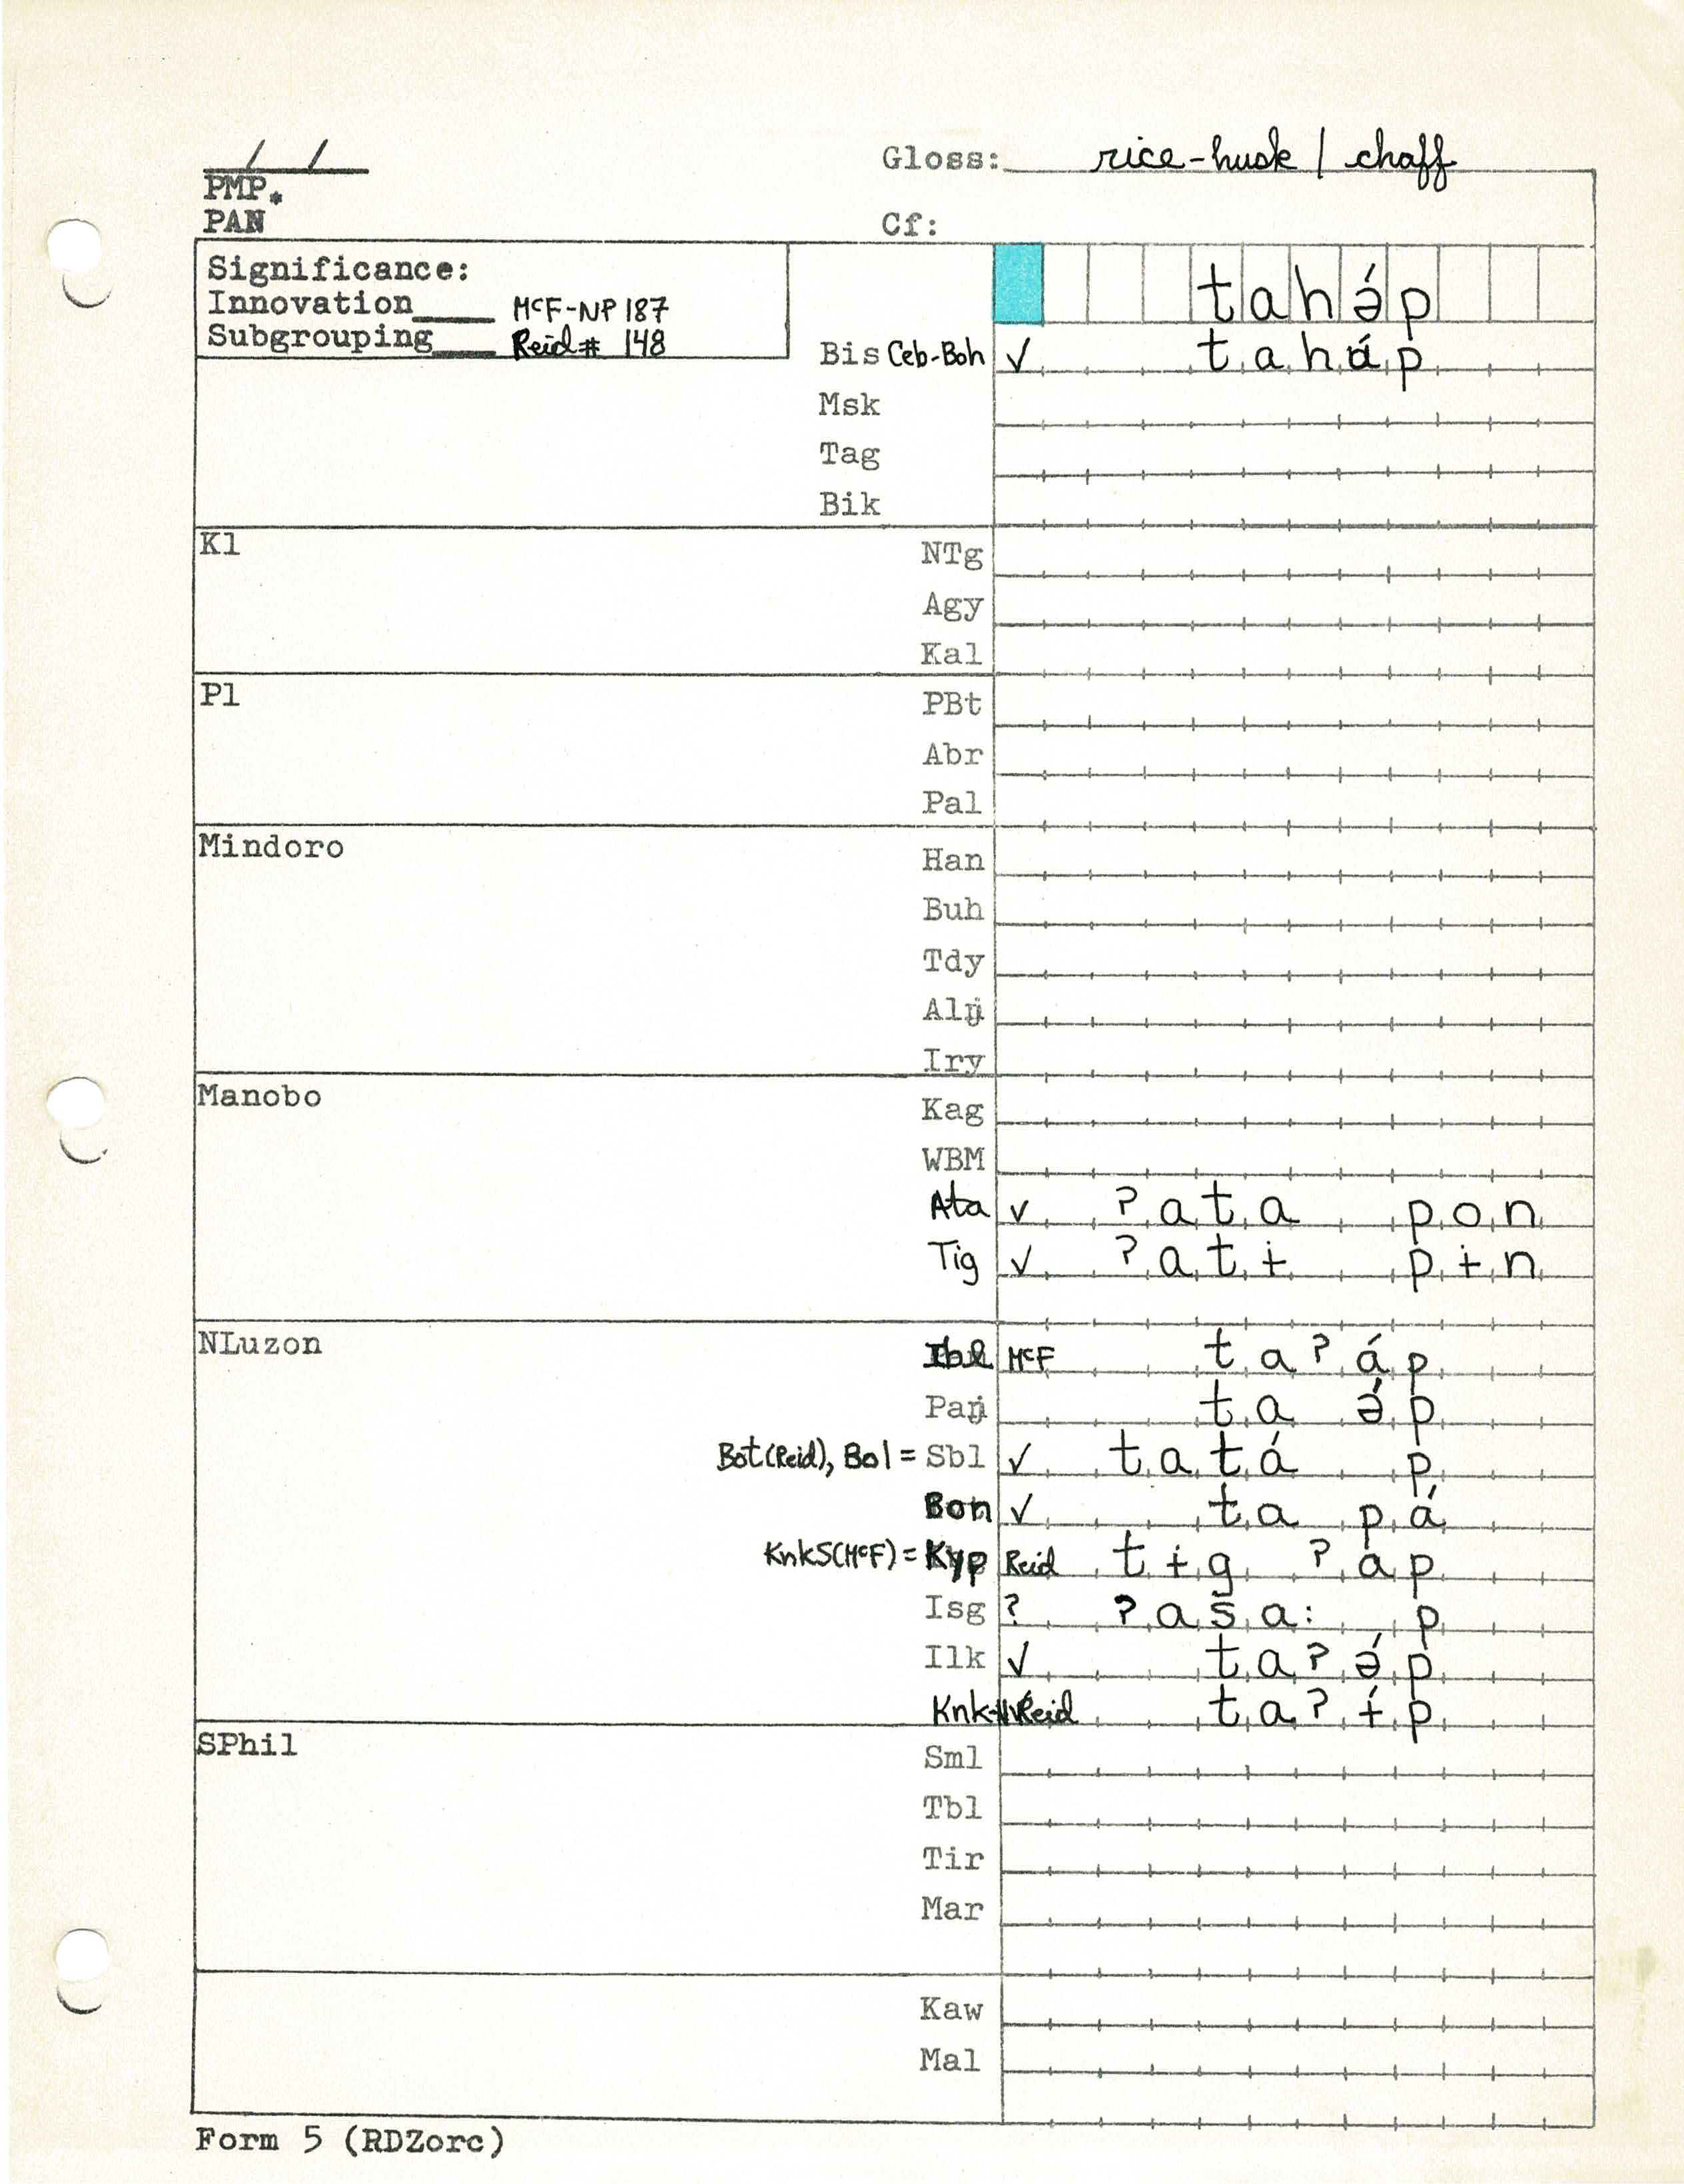 / /
Gloss: rice-husk / chaff
PMP*
PAN
Cf:
Significance:
Innovation____ McF-NP 187
Subgrouping____ Reid # 148
tahə́p
Bis Ceb-Boh √ taháp
Msk
Tag
Bik
Kl
NTg
Agy
Kal
Pl
PBt
Abr
Pal
Mindoro
Han
Buh
Tdy
Alŋ
Iry
Manobo
Kag
WBM
Ata √ ʔata pon
Tig √ ʔatɨ pɨn
NLuzon
Ibl McF taʔáp
Paŋ ta ə́p
Bot(Reid), Bol = Sbl √ tatá p
Bon √ ta pá
KnkS(McF) = Kyp Reid tɨg ʔap
Isg ? ʔasa: p
Ilk √ taʔə́p
Knk-N Reid taʔɨ́p
SPhil
Sml
Tbl
Tir
Mar
Kaw
Mal
Form 5 (RDZorc)